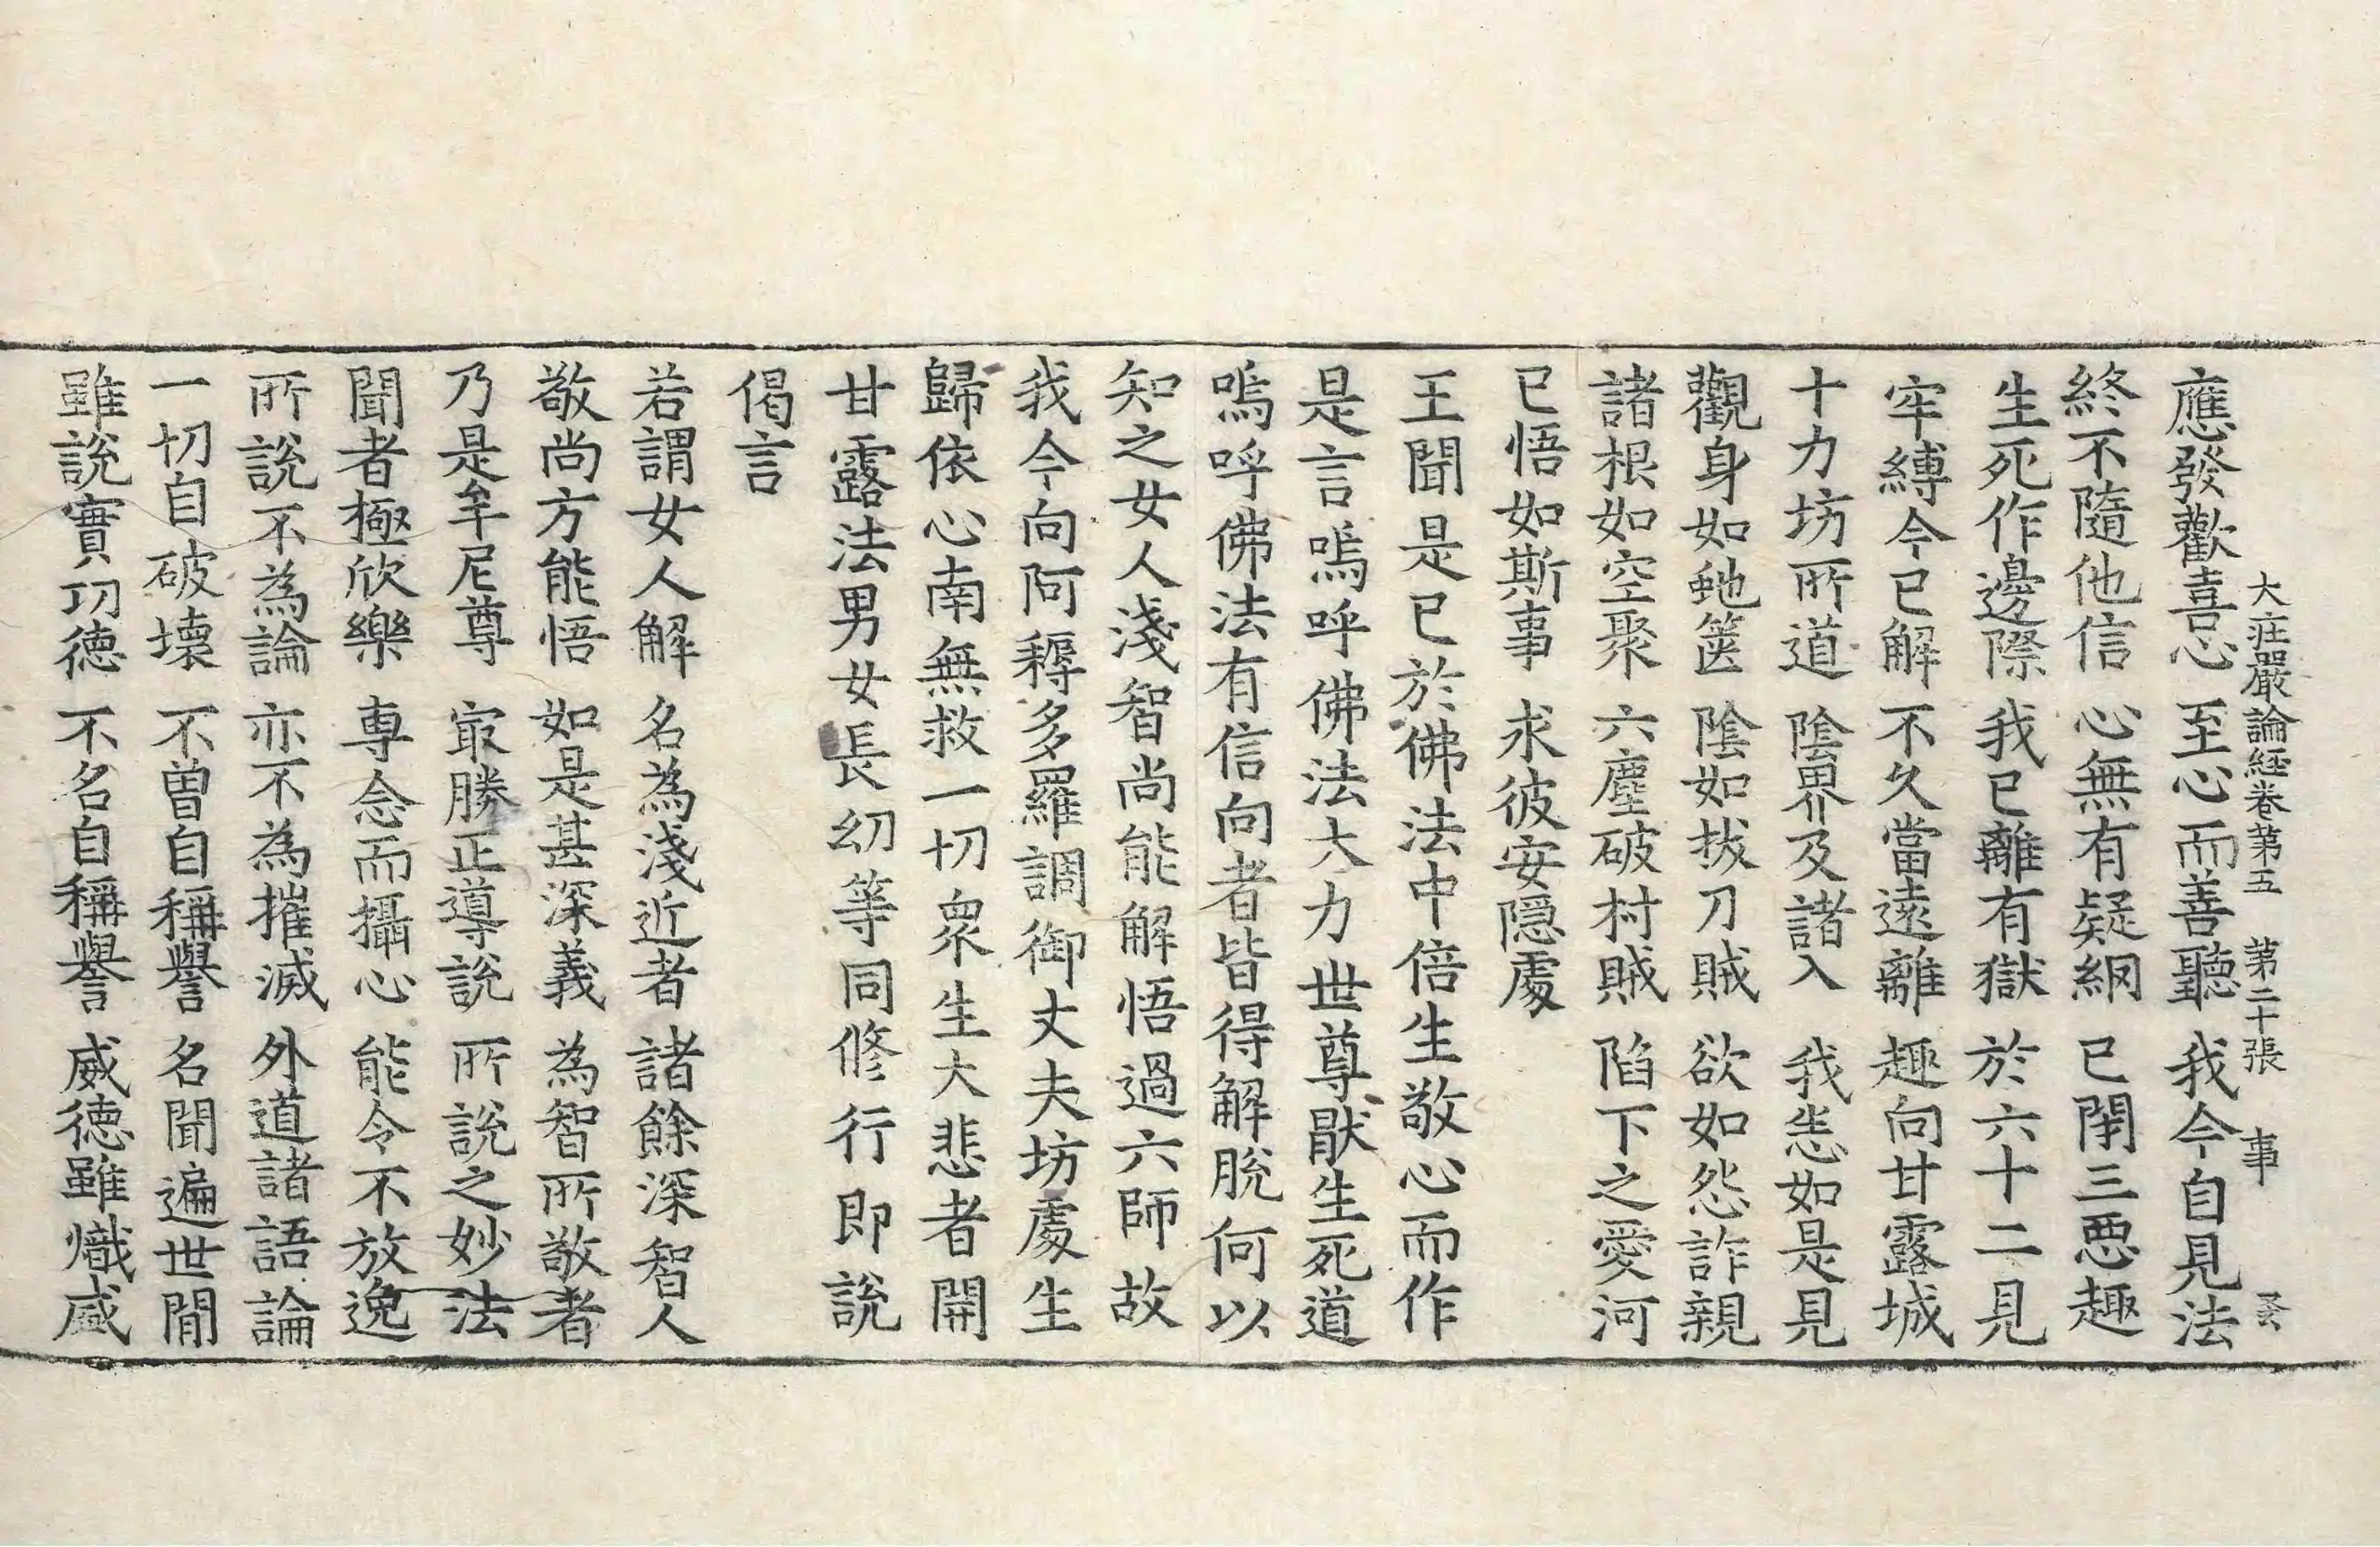 應發歡喜心 至心而善聽 我今自見法
大庄嚴論経卷第五 第二十張 事
終不隨他信 心無有疑網 已閇三惡趣
生死作邊際 我已離有獄 於六十二見
牢縛今已解 不久當遠離 趣向甘露城
十力坊所道 陰界及諸入 我恙如是見
觀身如虵篋 陰如拔刀賊 欲如怨詐親
諸根如空聚 六塵破村賊 陷下之愛河
已悟如斯事 求彼安隱處
王聞是已於佛法中倍生敬心而作
是言嗚呼佛法大力世尊猒生死道
嗚呼佛法有信向者皆得解脫何以
知之女人淺智尚能解悟過六師故
我今向阿耨多羅調御丈夫坊處生
歸依心南無救一切眾生大悲者開
甘露法男女長幼等同修行即說
偈言
若謂女人解 名為淺近者 諸餘深智人
敬尚方能悟 如是甚深義 為智所敬者
乃是牟尼尊 㝡勝正導說 所說之妙法
聞者極欣樂 専念而攝心 能令不放逸
所說不為論 亦不為摧滅 外道諸語論
一切自破壞 不曽自稱譽 名聞遍世間
雖說實功德 不名自稱譽 威德雖熾盛